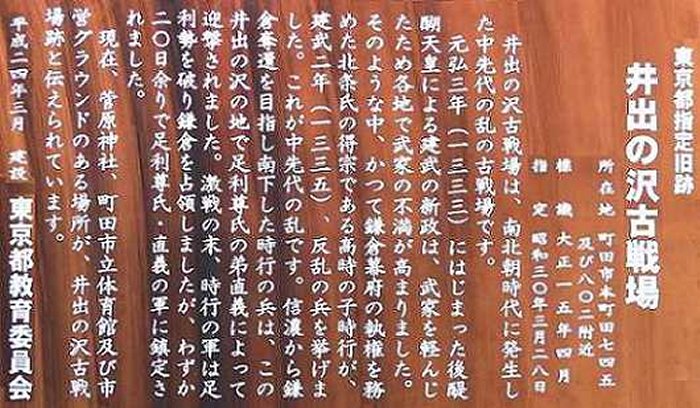 東京都指定旧跡
井出の沢古戦場
所在地 町田市本町田七四五
及び八〇二附近
標識 大正一五年四月
指定 昭和三〇年三月二八日
井出の沢古戦場は、南北朝時代に発生し
た中先代の乱の古戦場です。
元弘三年(一三三三)にはじまった後醍
醐天皇による建武の新政は、武家を軽んじ
たため各地で武家の不満が高まりました。
そのような中、かつて鎌倉幕府の執権を務
めた北条氏の得宗である高時の子時行が、
建武二年(一三三五)、反乱の兵を挙げま
した。これが中先代の乱です。信濃から鎌
倉奪還を目指し南下した時行の兵は、この
井出の沢の地で足利尊氏の弟直義によって
迎撃されました。激戦の末、時行の軍は足
利勢を破り鎌倉を占領しましたが、わずか
二〇日余りで足利尊氏、直義の軍に鎮定さ
れました。
現在、菅原神社、町田市立体育館及び市
営グラウンドのある場所が、井出の沢古戦
場跡と伝えられています。
平成二四年三月 建設 東京都教育委員会